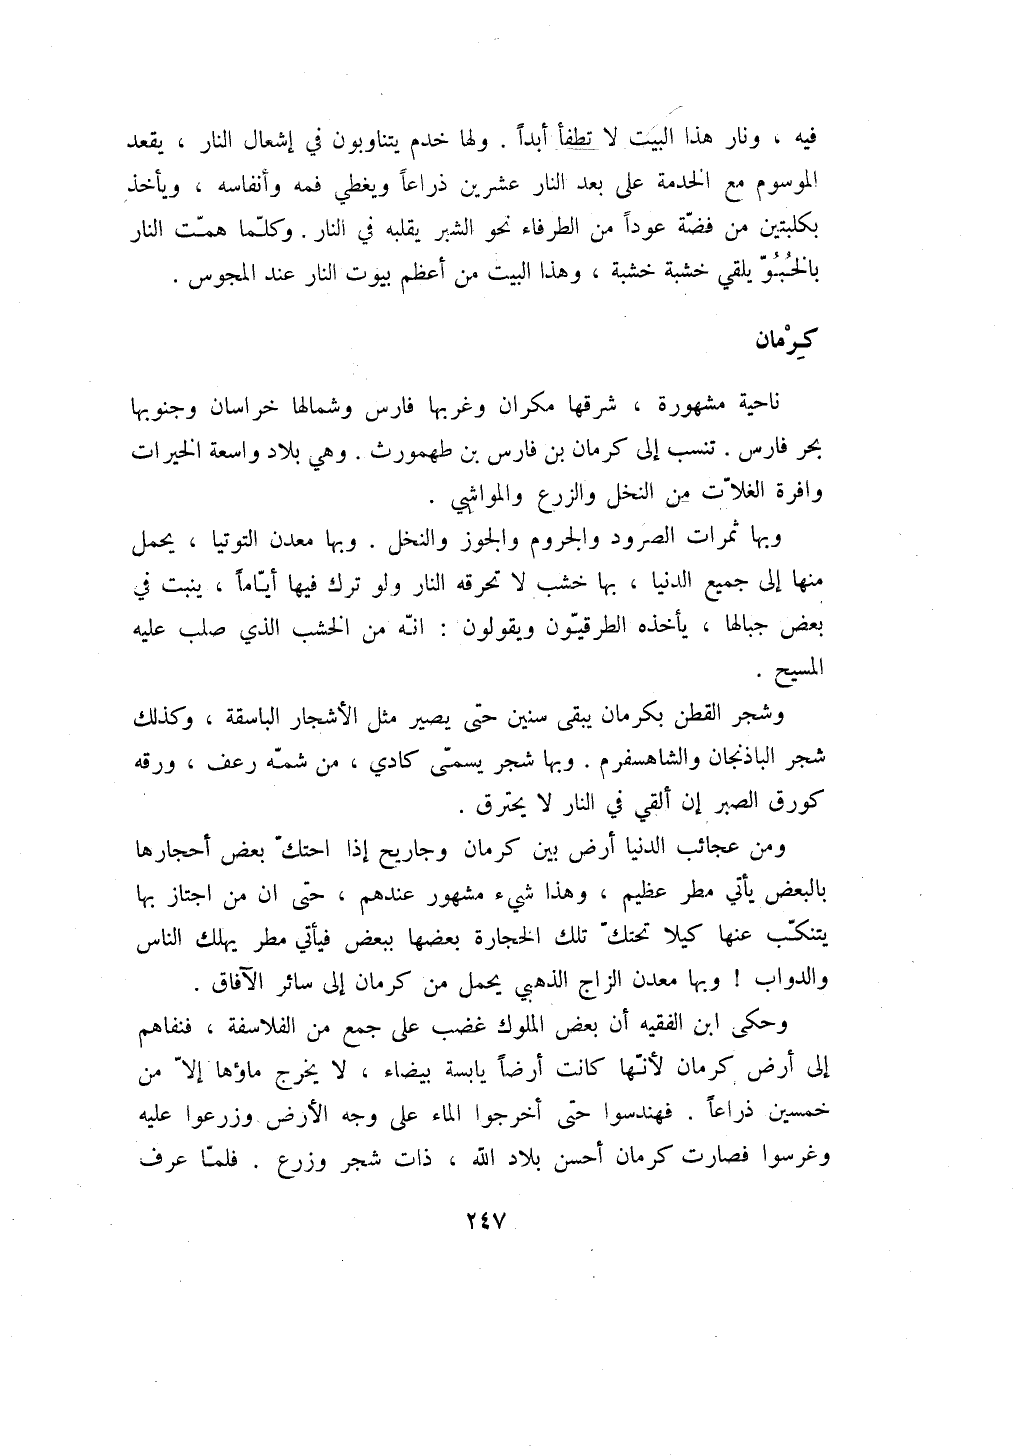 فيه ، ونار هذا البيت لا تطفأ أبداً . ولها خدم يتناوبون في إشعال النار ، يقعد
الموسوم مع الخدمة على بعد النار عشرين ذراعاً ويغطي فمه وأنفاسه ، ويأخذ
بكلبتين من فضّة عوداً من الطرفاء نحو الشبر يقلبه في النار . وكلّما همّت النار
بالخُبُوّ يلقي خشبة خشبة ، وهذا البيت من أعظم بيوت النار عند المجوس .
كِرْمان
ناحية مشهورة ، شرقها مكران وغربها فارس وشمالها خراسان وجنوبها
بحر فارس . تنسب إلى كرمان بن فارس بن طهمورث . وهي بلاد واسعة الخيرات
وافرة الغلاّت من النخل والزرع والمواشي .
وبها ثمرات الصرود والجروم والجوز والنخل . وبها معدن التوتيا ، يحمل
منها إلى جميع الدنيا ، بها خشب لا تحرقه النار ولو ترك فيها أيّاماً ، ينبت في
بعض جبالها ، يأخذه الطرقيّون ويقولون : انّه من الخشب الذي صلب عليه
المسيح .
وشجر القطن بكرمان يبقى سنين حتّى يصير مثل الأشجار الباسقة ، وكذلك
شجر الباذنجان والشاهسفرم . وبها شجر يسمّى كادي ، من شمّه رعف ، ورقه
كورق الصبر إن ألقي في النار لا يحترق .
ومن عجائب الدنيا أرض بين كرمان وجاريح إذا احتكّ بعض أحجارها
بالبعض يأتي مطر عظيم ، وهذا شيء مشهور عندهم ، حتّى ان من اجتاز بها
يتنكّب عنها كيلا تحتكّ تلك الحجارة بعضها ببعض فيأتي مطر يهلك الناس
والدواب ! وبها معدن الزاج الذهبي يحمل من كرمان إلى سائر الآفاق .
وحكى ابن الفقيه أن بعض الملوك غضب على جمع من الفلاسفة ، فنفاهم
إلى أرض كرمان لأنّها كانت أرضاً يابسة بيضاء ، لا يخرج ماؤها إلاّ من
خمسين ذراعاً . فهندسوا حتّى أخرجوا الماء على وجه الأرض وزرعوا عليه
وغرسوا فصارت كرمان أحسن بلاد الله ، ذات شجر وزرع . فلمّا عرف
٢٤٧